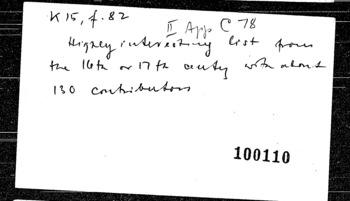 K 15, f. 82
II App C 78
Highly interesting list from
the 16th or 17th centy with about
130 contributors
100110